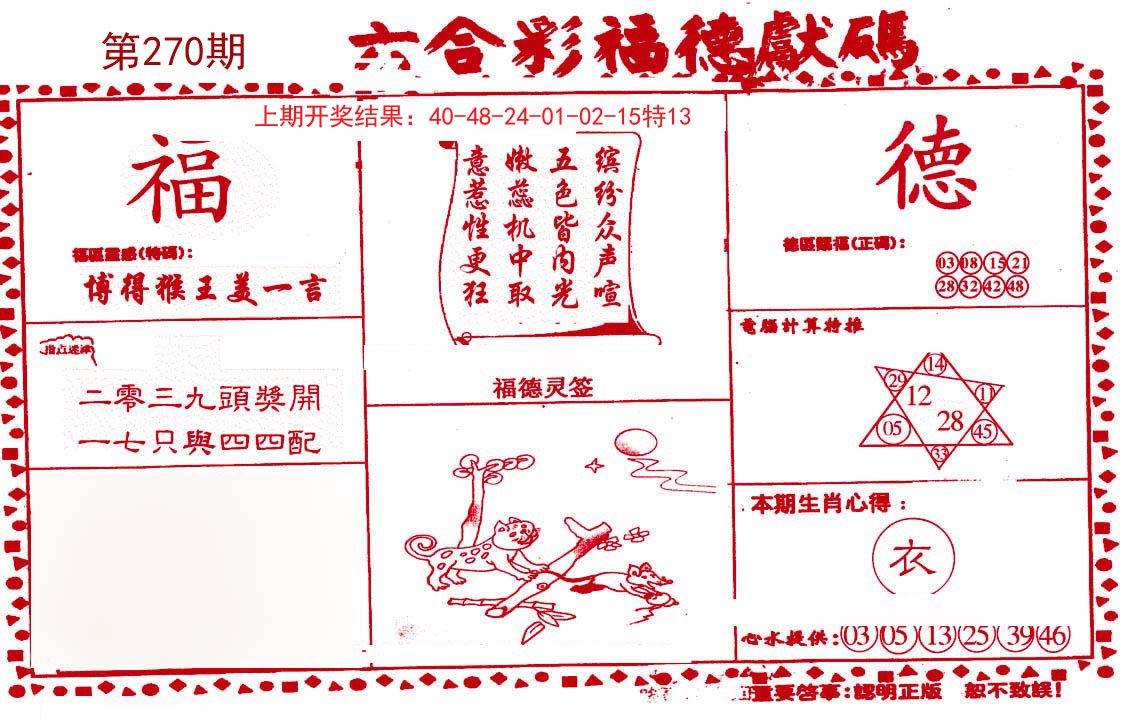 第270期
六合彩福德獻碼
上期开奖结果：40-48-24-01-02-15特13
福
福區靈感(特碼)：
博得猴王美一言
二零三九頭獎開
一七只與四四配
缤纷众声喧
五色皆内光
嫩蕊机中取
意惹性更狂
福德灵签
德
德區賜福(正碼)：
03 08 15 21
28 32 42 48
電腦計算特推
14
29 12 11
05 28 45
33
本期生肖心得：
衣
心水提供：03 05 13 25 39 46
重要啓事：認明正版 恕不致誤！